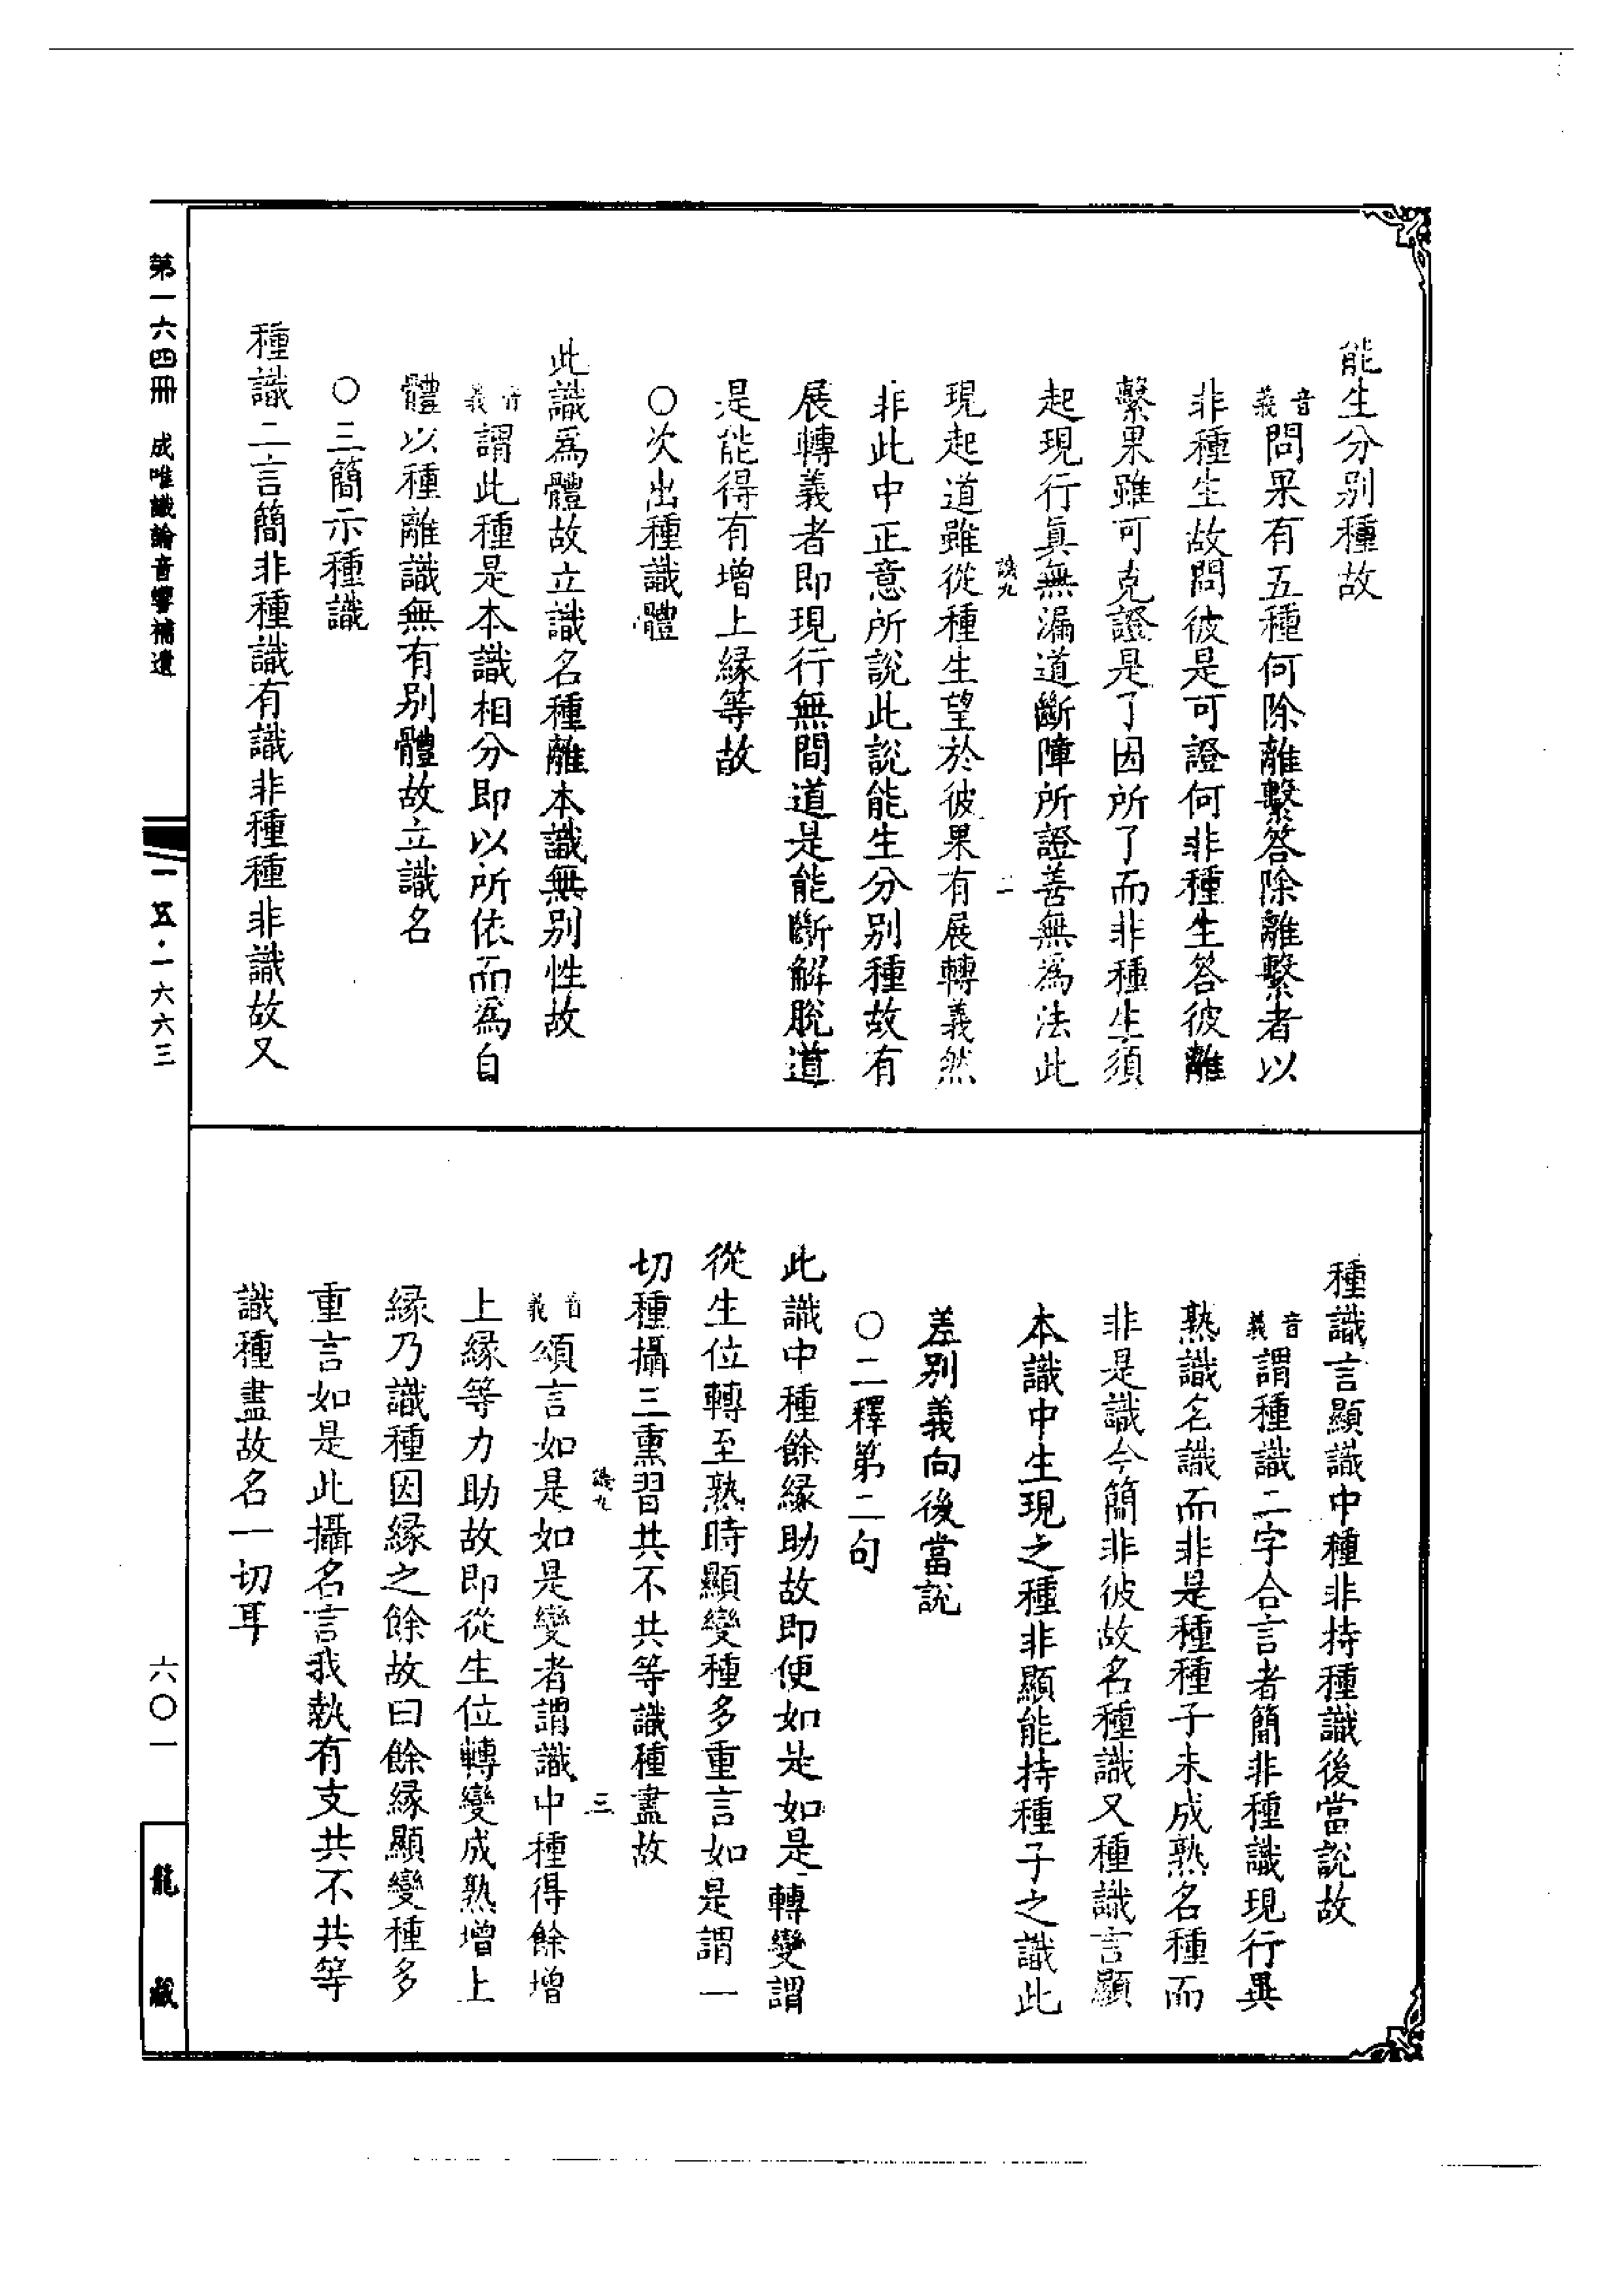 能生分別種故
音義問果有五種何除離繫答除離繫者以
非種生故問彼是可證何非種生答彼離
繫果雖可克證是了因所了而非種生須
起現行真無漏道斷障所證善無為法此
談九 二
現起道雖從種生望於彼果有展轉義然
非此中正意所說此說能生分別種故有
展轉義者即現行無間道是能斷解脫道
是能得有增上緣等故
○次出種識體
此識為體故立識名種離本識無別性故
音義謂此種是本識相分即以所依而為自
體以種離識無有別體故立識名
○三簡示種識
種識二言簡非種識有識非種種非識故又
種識言顯識中種非持種識後當說故
音義謂種識二字合言者簡非種識現行異
熟識名識而非是種種子未成熟名種而
非是識今簡非彼故名種識又種識言顯
本識中生現之種非顯能持種子之識此
差別義向後當說
○二釋第二句
此識中種餘緣助故即便如是如是轉變謂
從生位轉至熟時顯變種多重言如是謂一
切種攝三熏習共不共等識種盡故
談九 三
音義頌言如是如是變者謂識中種得餘增
上緣等力助故即從生位轉變成熟增上
緣乃識種因緣之餘故曰餘緣顯變種多
重言如是此攝名言我執有支共不共等
識種盡故名一切耳
第一六四冊 成唯識論音響補遺
一五·一六六三
六〇一
龍藏